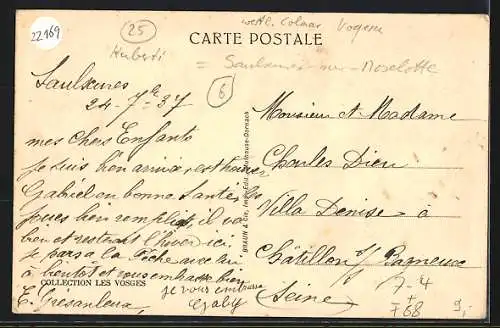 22169
25
westl. Colmar Vogesen
Huberti
CARTE POSTALE
= Saulxures-sur-Moselotte
6
Saulxures
24-7-37
mes chers Enfants
je suis bien arrivé, est trouver
Gabriel en bonne santé, les
joues bien remplit, il va
bien et restent l'hiver ici
je pars a la Pêche avec lui
à bientôt et vous embrasse bien
je vous embrasse
Gaby
Monsieur et Madame
Charles Dieu
Villa Denise à
Châtillon s/s Bagneux
(Seine)
BRAUN & Cie, Imp.-Edit., Mulhouse-Dornach
COLLECTION LES VOSGES
7-4
+
768
9,-